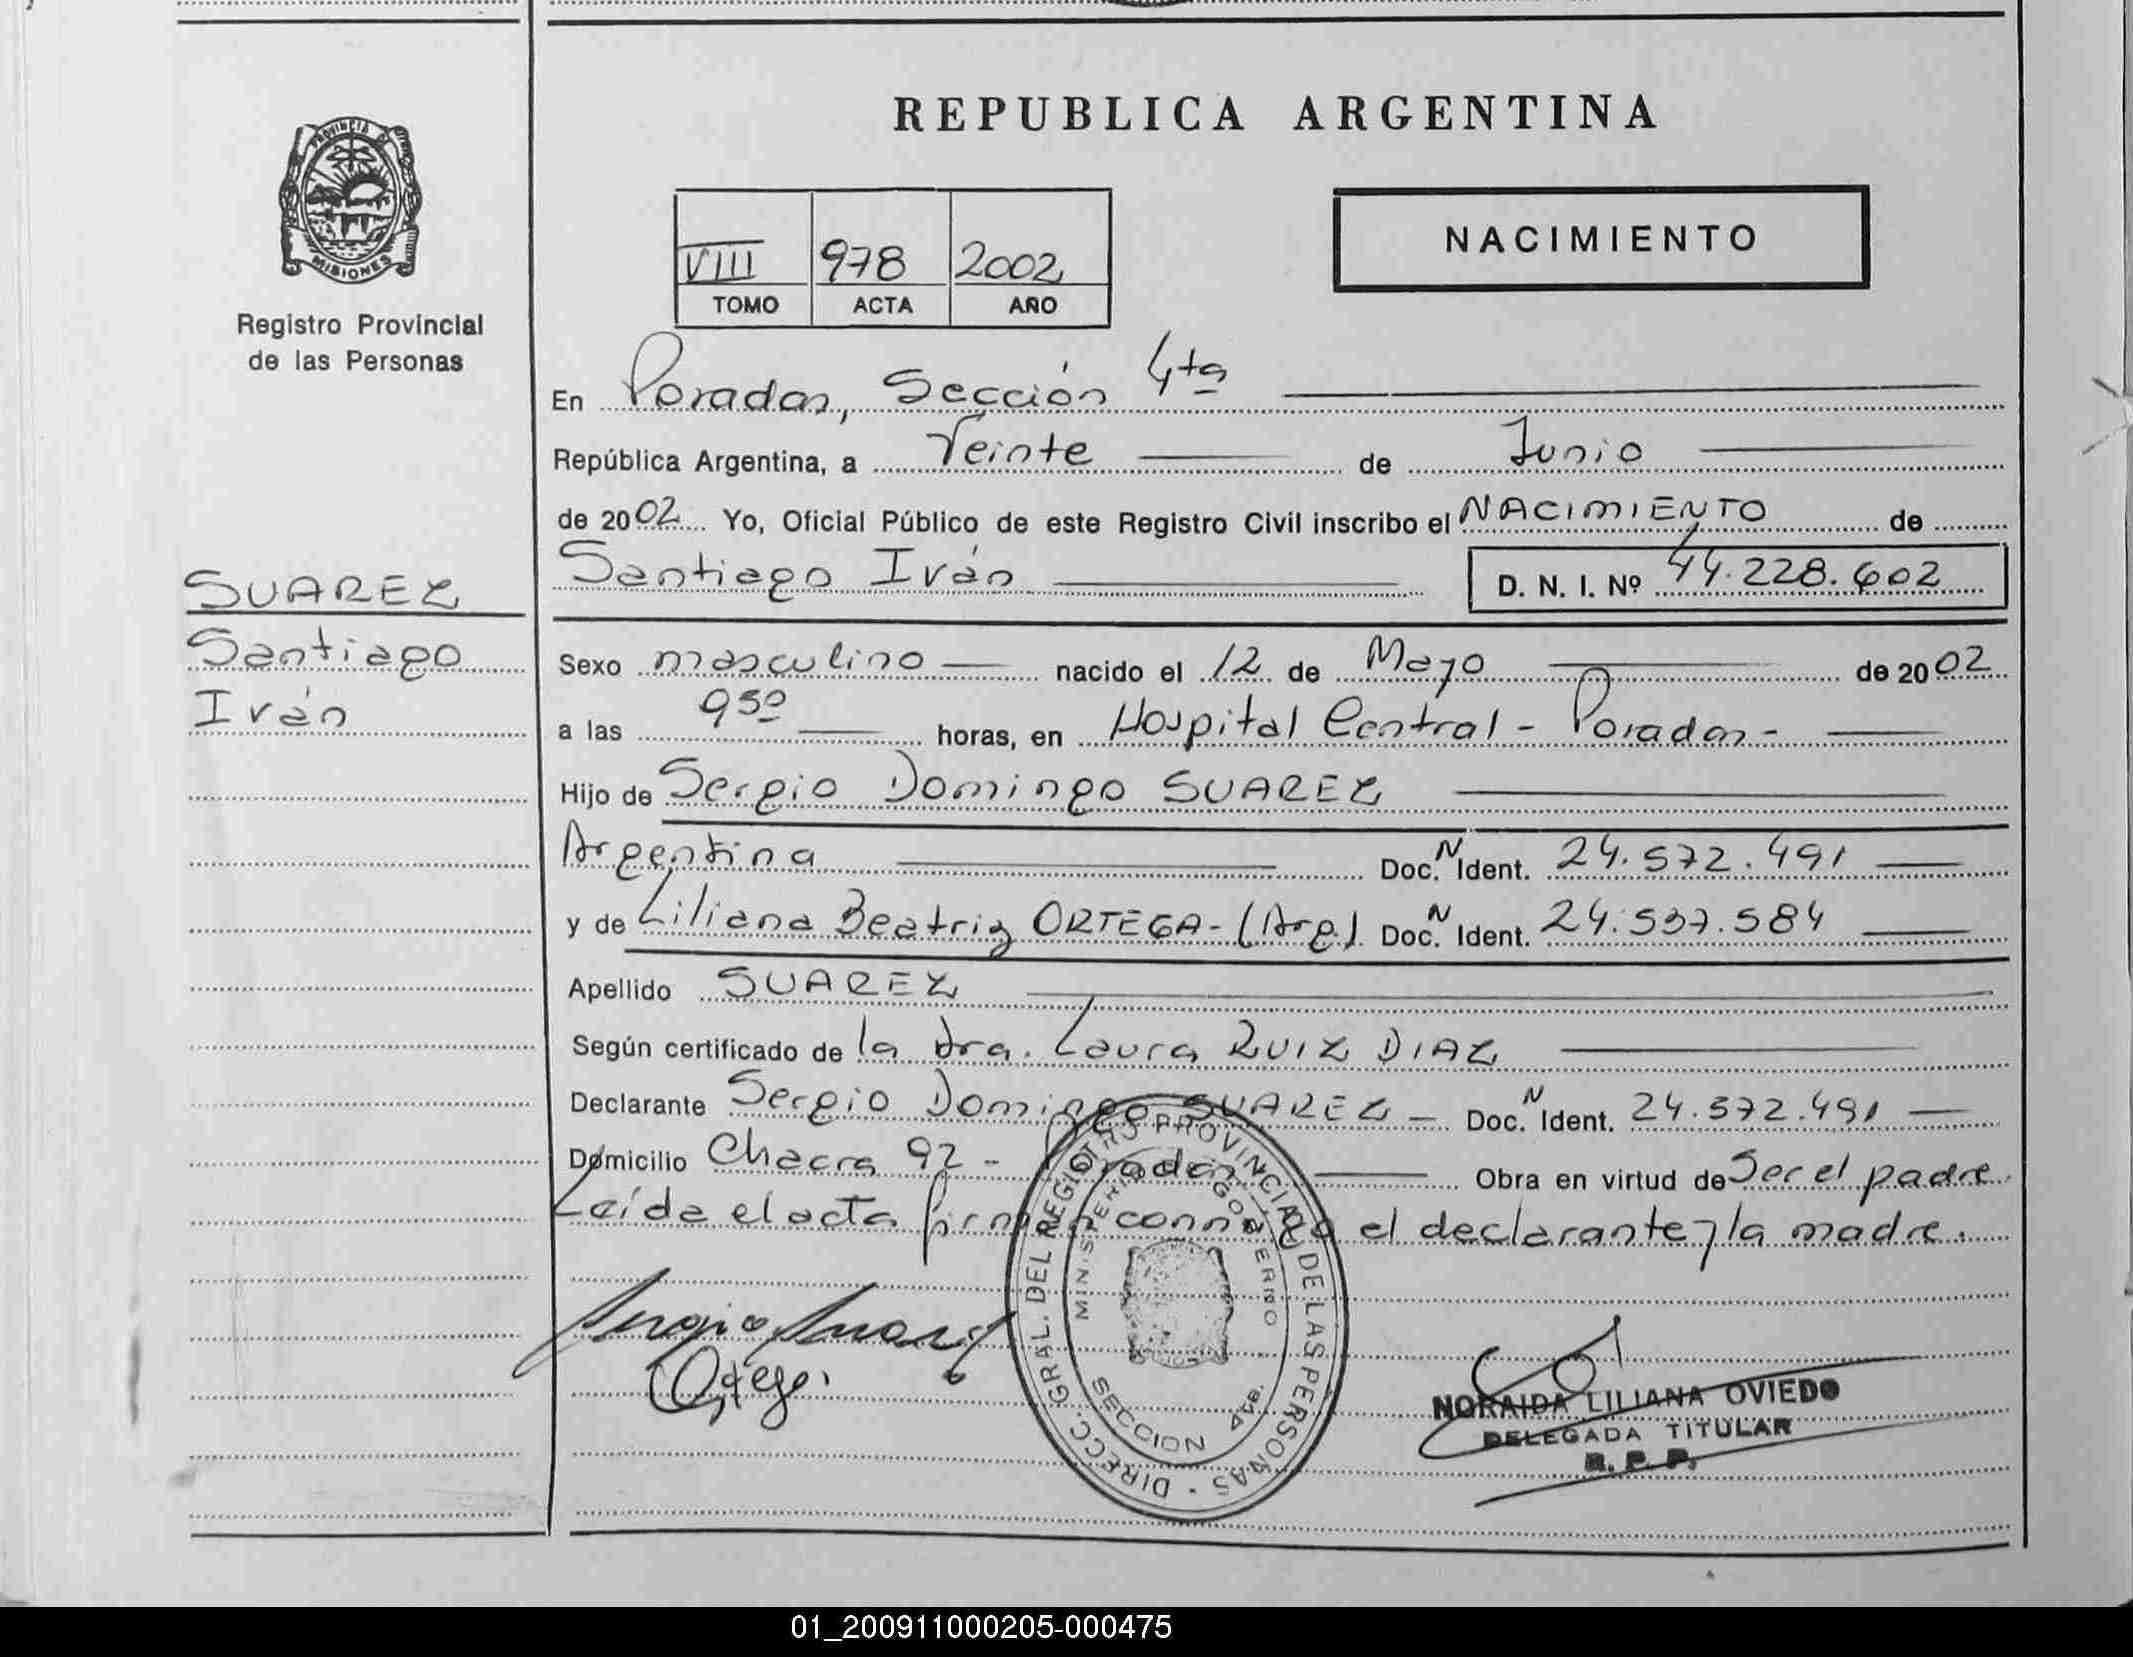 PROVINCIA DE
MISIONES
Registro Provincial
de las Personas
SUAREZ
Santiago
Iván
REPUBLICA ARGENTINA
VIII 978 2002
TOMO ACTA AÑO
NACIMIENTO
En Posadas, Sección 4ta
República Argentina, a Veinte de Junio
de 2002 Yo, Oficial Público de este Registro Civil inscribo el NACIMIENTO de
Santiago Iván D. N. I. Nº 44.228.602
Sexo masculino nacido el 12 de Mayo de 2002
a las 9 50 horas, en Hospital Central - Posadas -
Hijo de Sergio Domingo SUAREZ
Argentina Doc. N Ident. 24.572.491
y de Liliana Beatriz ORTEGA - (Arg) Doc. N Ident. 24.537.584
Apellido SUAREZ
Según certificado de la dra. Laura RUIZ DIAZ
Declarante Sergio Domingo SUAREZ - Doc. N Ident. 24.572.491
Domicilio Chacra 92 - Posadas Obra en virtud de Ser el padre
Leída el acta firman conmigo el declarante y la madre.
DIRECC. GRAL. DEL REGISTRO PROVINCIAL DE LAS PERSONAS
MINISTERIO GOBIERNO
SECCION 4ta.
Sergio Suarez
Ortega
NORAIDA LILIANA OVIEDO
DELEGADA TITULAR
R. P. P.
01_200911000205-000475